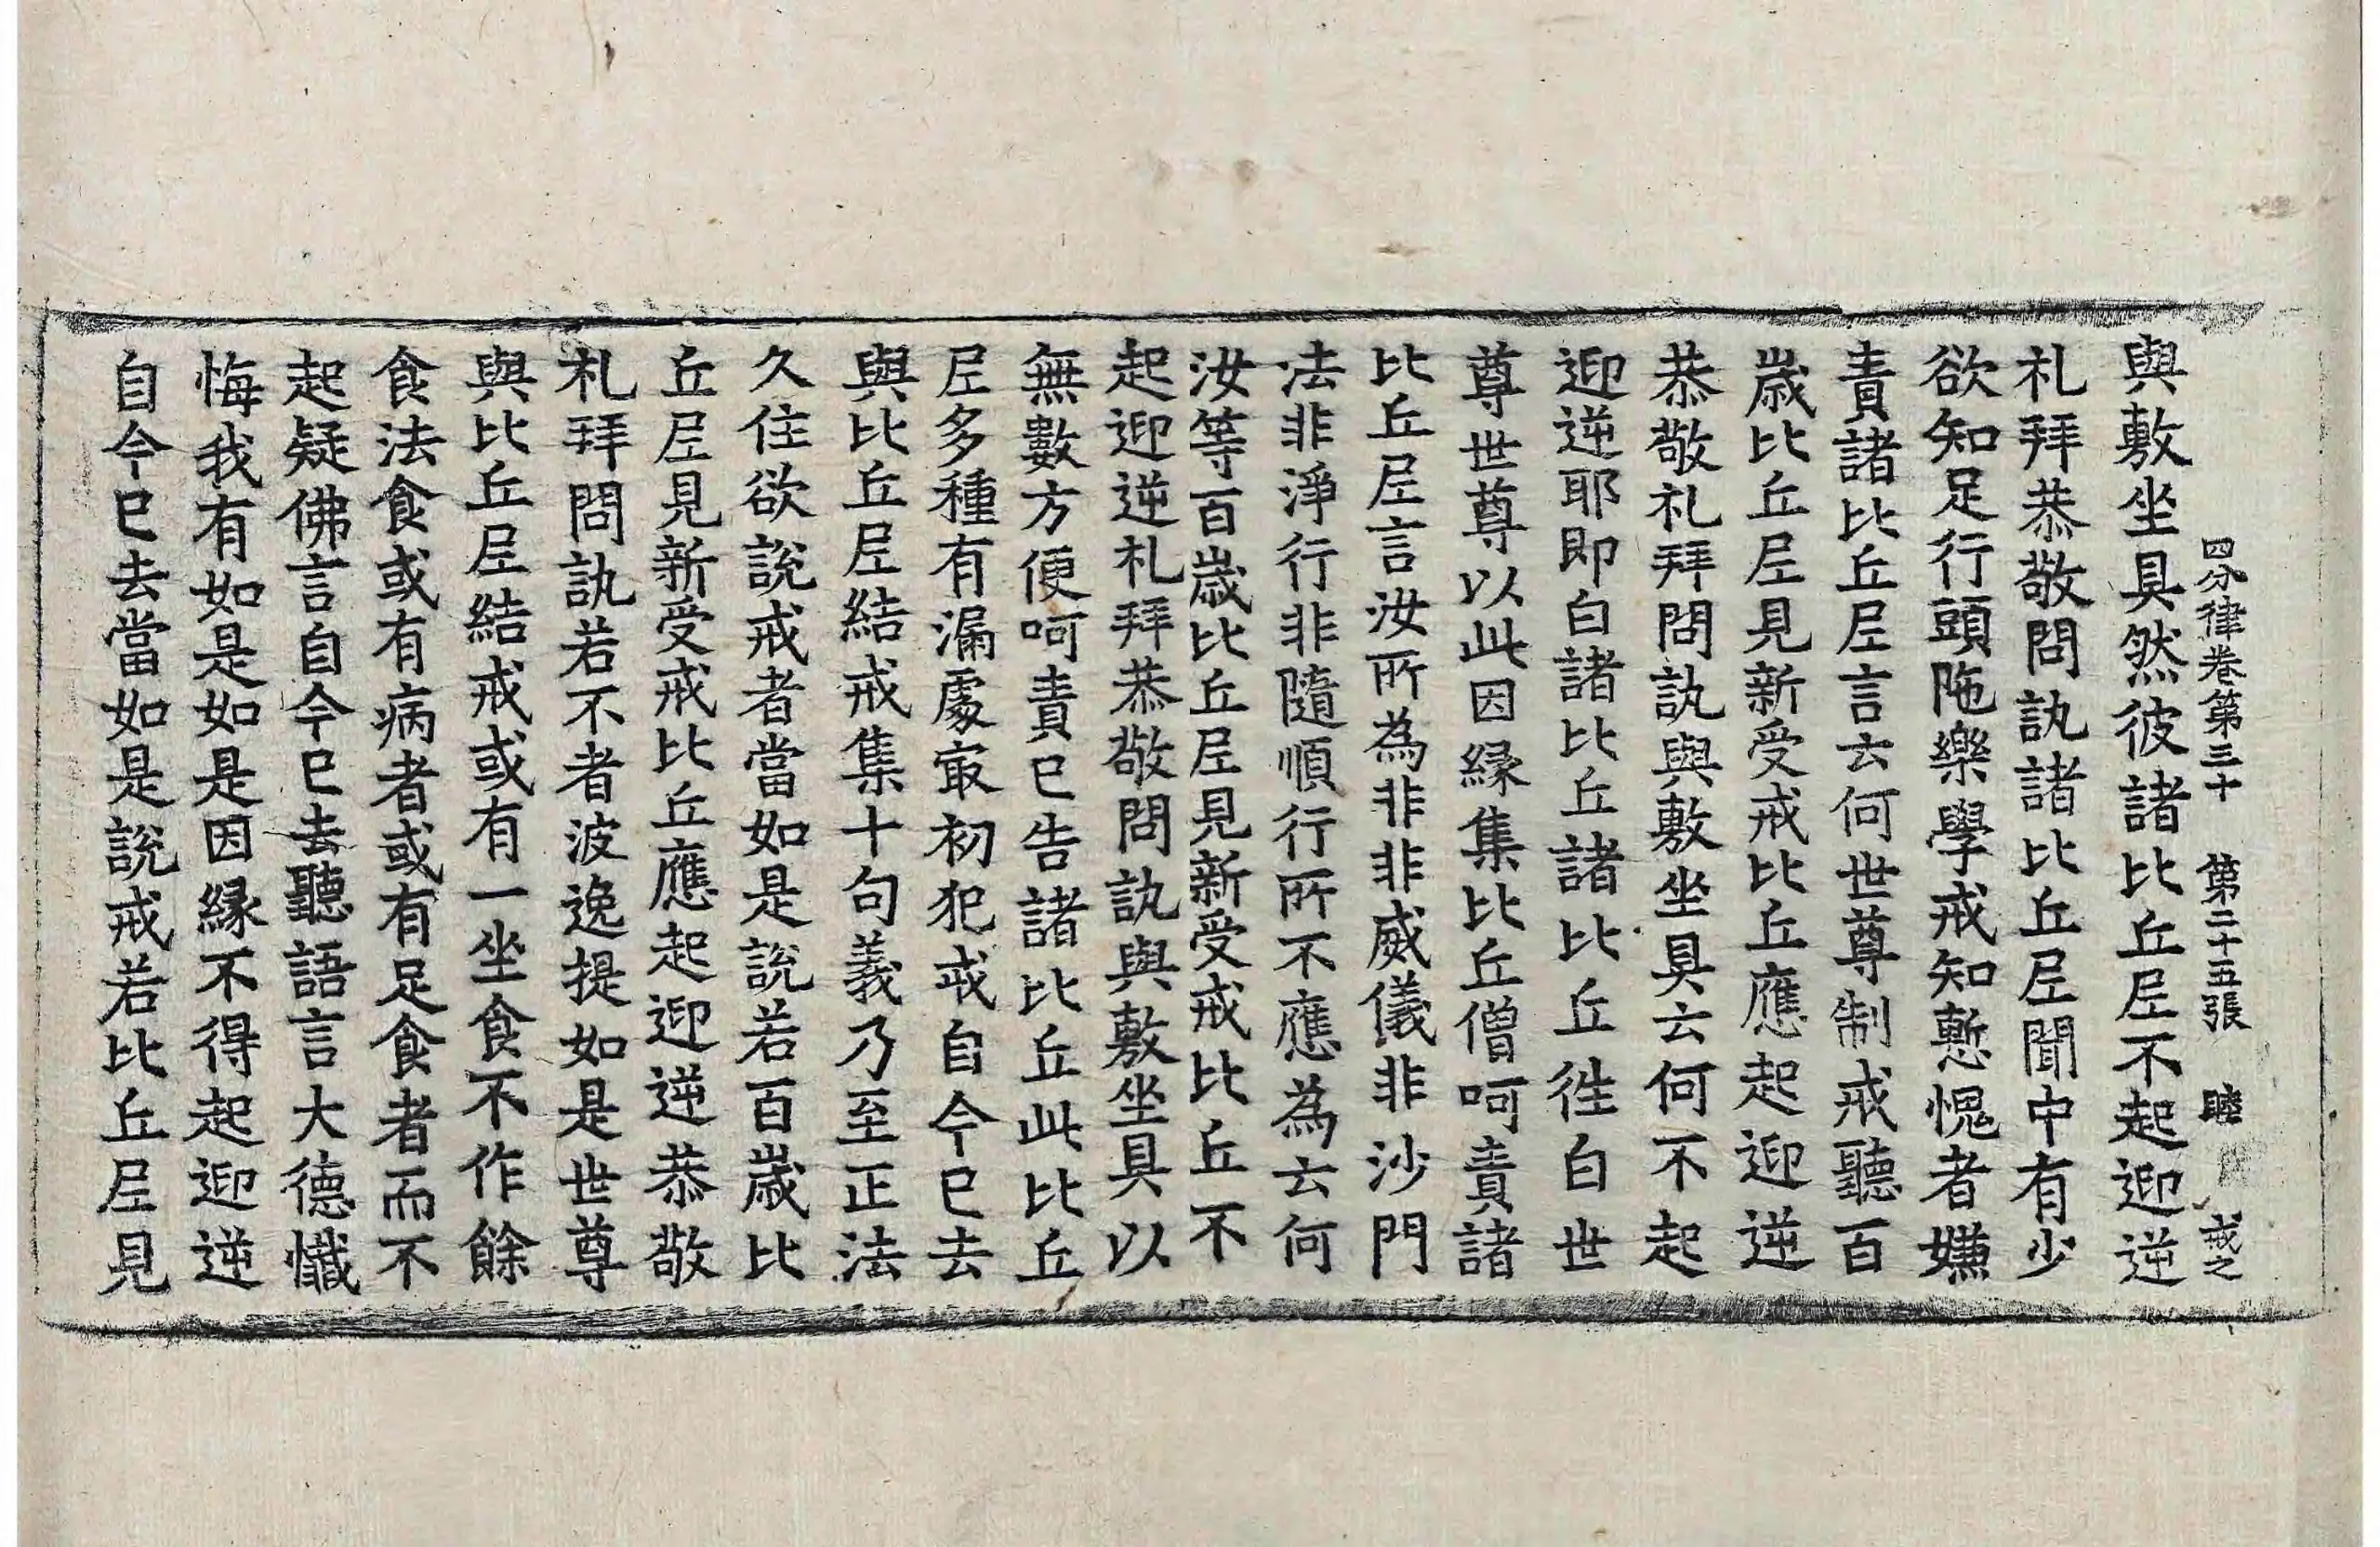 四分律卷第三十 第二十五張 睦 戒之
與敷坐具然彼諸比丘尼不起迎逆
礼拜恭敬問訊諸比丘尼聞中有少
欲知足行頭陁樂學戒知慙愧者嫌
責諸比丘尼言云何世尊制戒聽百
歲比丘尼見新受戒比丘應起迎逆
恭敬礼拜問訊與敷坐具云何不起
迎逆耶即白諸比丘諸比丘徃白世
尊世尊以此因縁集比丘僧呵責諸
比丘尼言汝所為非非威儀非沙門
法非淨行非隨順行所不應為云何
汝等百歲比丘尼見新受戒比丘不
起迎逆礼拜恭敬問訊與敷坐具以
無數方便呵責已告諸比丘此比丘
尼多種有漏處㝡初犯戒自今已去
與比丘尼結戒集十句義乃至正法
久住欲說戒者當如是說若百歲比
丘尼見新受戒比丘應起迎逆恭敬
礼拜問訊若不者波逸提如是世尊
與比丘尼結戒或有一坐食不作餘
食法食或有病者或有足食者而不
起疑佛言自今已去聽語言大德懺
悔我有如是如是因縁不得起迎逆
自今已去當如是說戒若比丘尼見